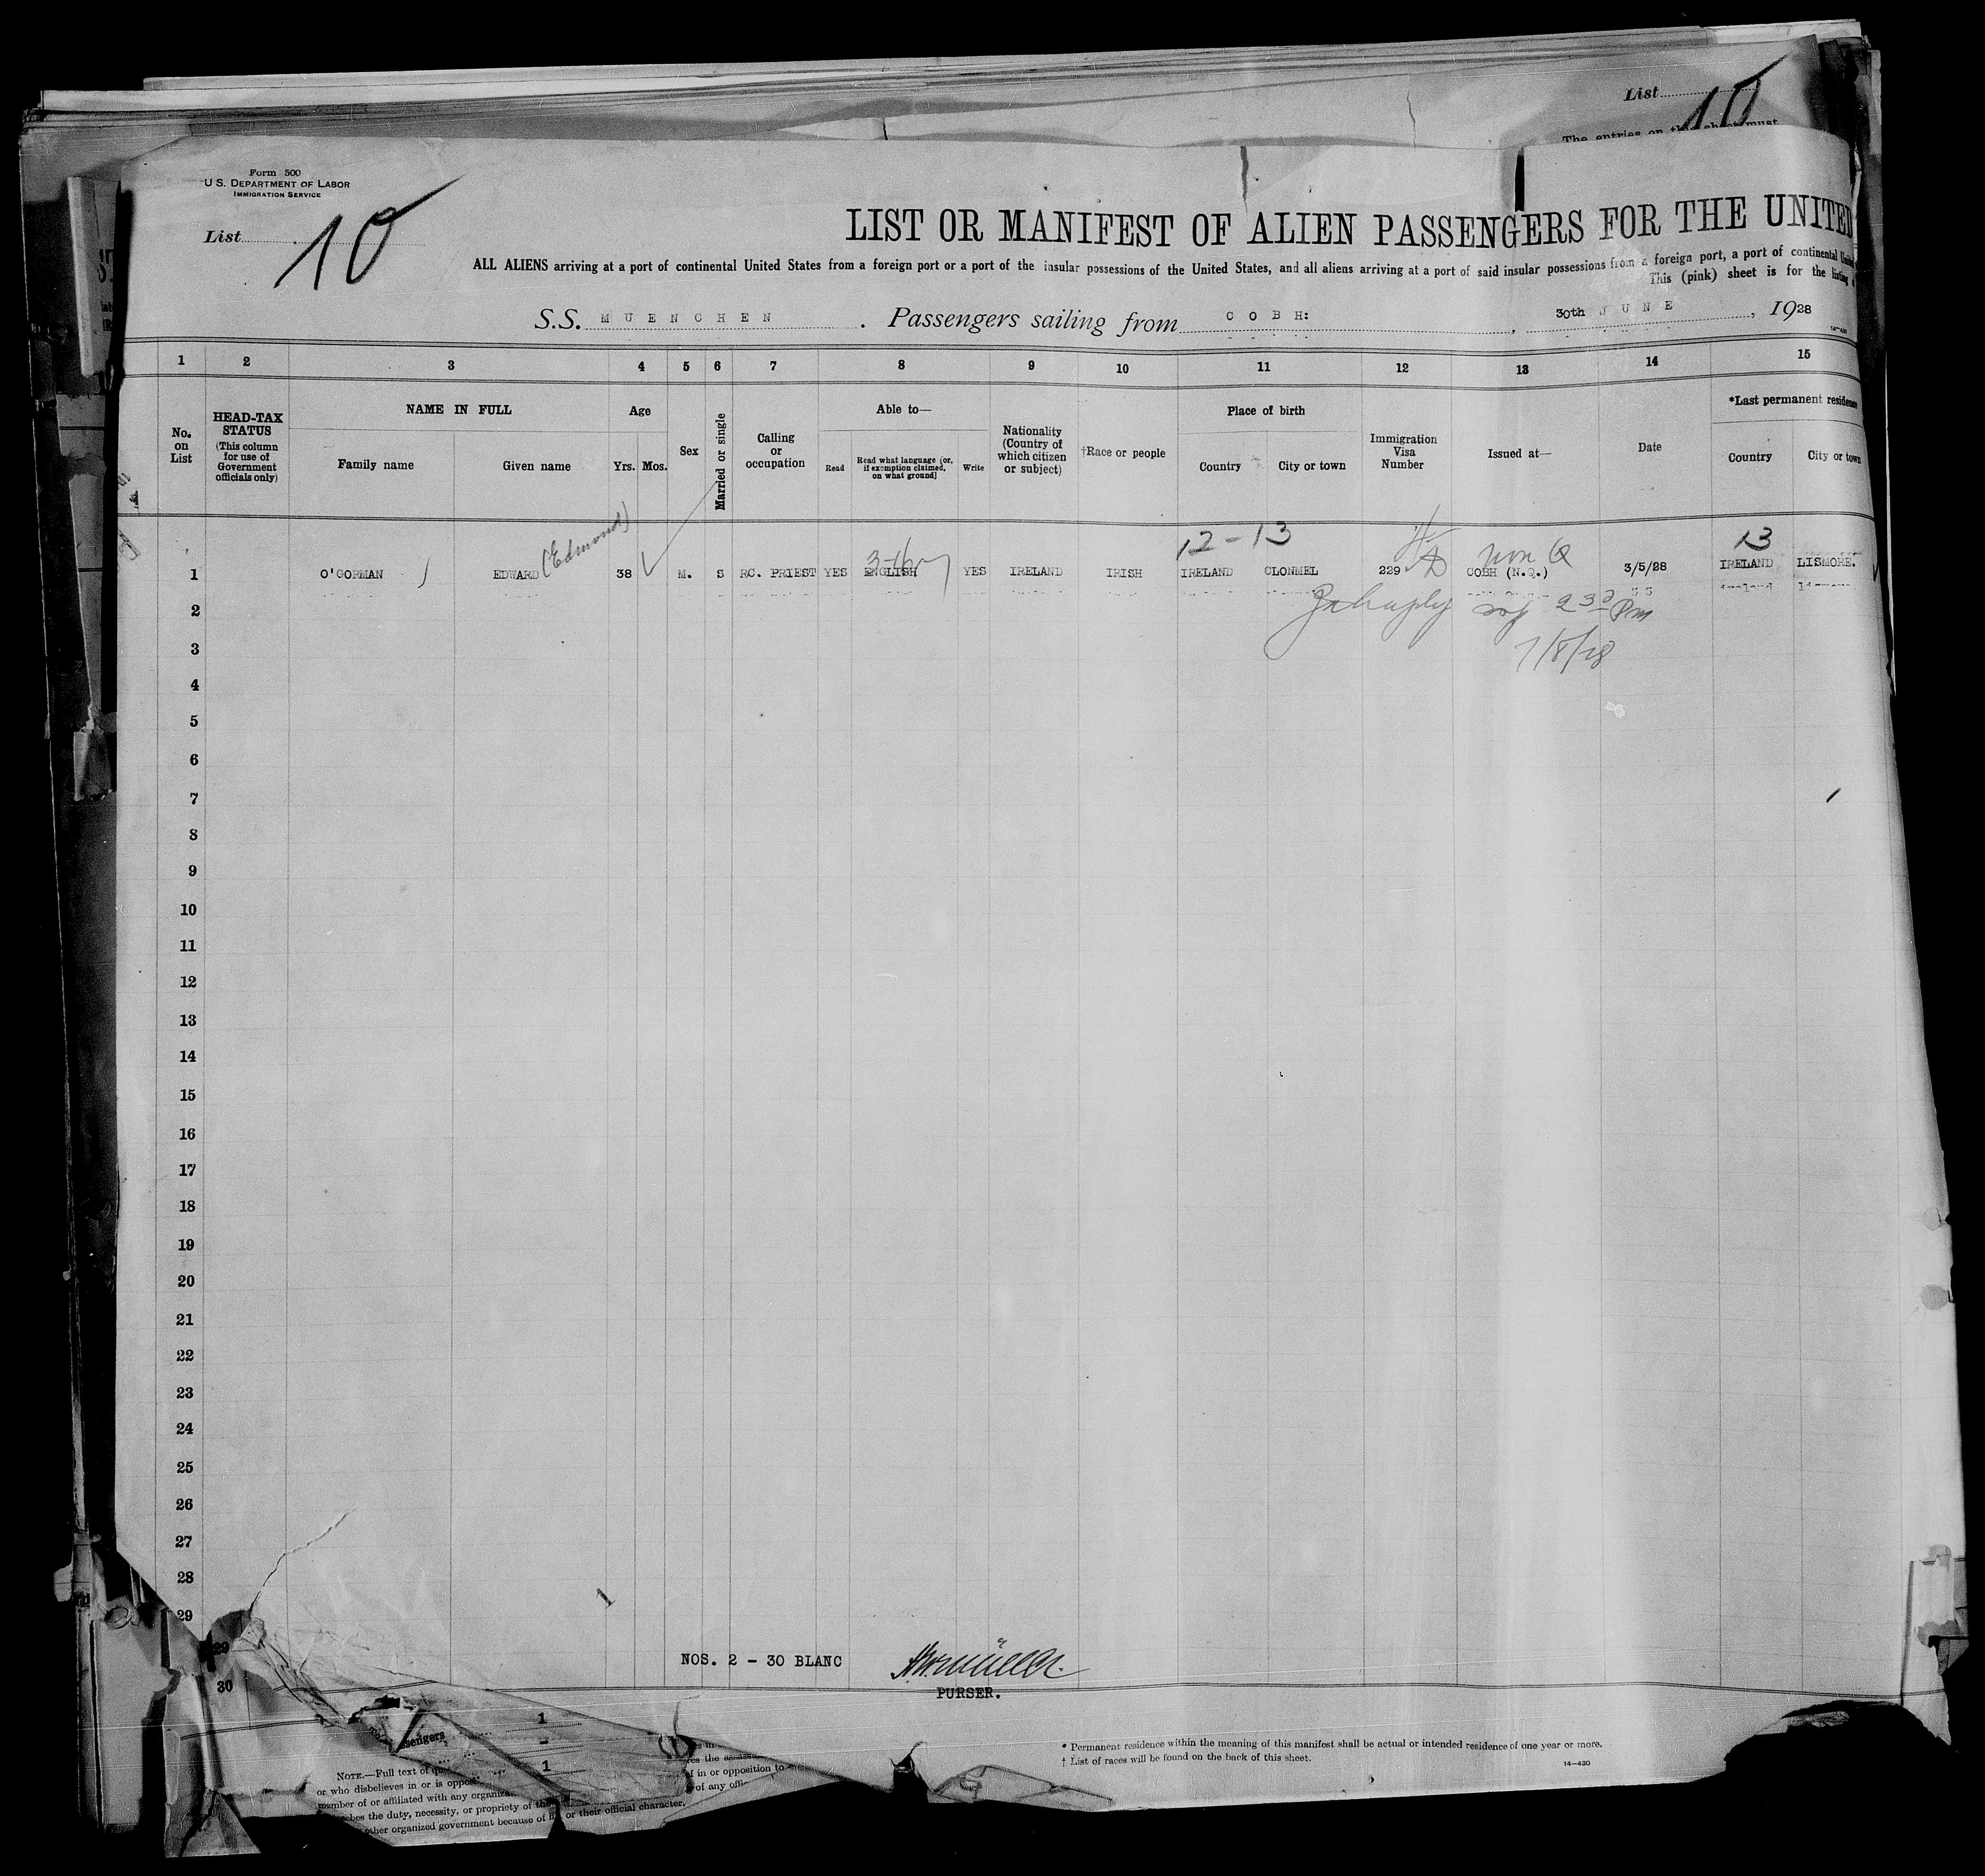 List
10
The entries on this sheet must
Form 500
U.S. DEPARTMENT OF LABOR
IMMIGRATION SERVICE
List 10
LIST OR MANIFEST OF ALIEN PASSENGERS FOR THE UNITED
ALL ALIENS arriving at a port of continental United States from a foreign port or a port of the insular possessions of the United States, and all aliens arriving at a port of said insular possessions from a foreign port, a port of continental United
This (pink) sheet is for the listing
S.S. MUENCHEN. Passengers sailing from COBH: , 30th JUNE , 1928
14-430
1 2 3 4 5 6 7 8 9 10 11 12 13 14 15
No. on List
HEAD-TAX STATUS
(This column for use of Government officials only)
NAME IN FULL
Family name
Given name
Age
Yrs. Mos.
Sex
Married or single
Calling or occupation
Able to—
Read
Read what language [or, if exemption claimed, on what ground]
Write
Nationality (Country of which citizen or subject)
†Race or people
Place of birth
Country
City or town
Immigration Visa Number
Issued at—
Date
*Last permanent residence
Country
City or town
(Edmond)
12-13
non Q
13
1 O'GORMAN EDWARD 38 M. S RC. PRIEST YES ENGLISH YES IRELAND IRISH IRELAND CLONMEL 229 COBH (N.Q.) 3/5/28 IRELAND LISMORE.
2
2 30 Pm
3
7/8/28
4
5
6
7
8
9
10
11
12
13
14
15
16
17
18
19
20
21
22
23
24
25
26
27
28
1
29
29
NOS. 2 - 30 BLANC
30
PURSER.
ssengers 1
1
* Permanent residence within the meaning of this manifest shall be actual or intended residence of one year or more.
† List of races will be found on the back of this sheet.
14-430
NOTE.—Full text of
or who disbelieves in or is oppos
member of or affiliated with any organiza
the duty, necessity, or propriety of the
other organized government because of his or their official character.
es the assass
of in or opposition to
of any offi